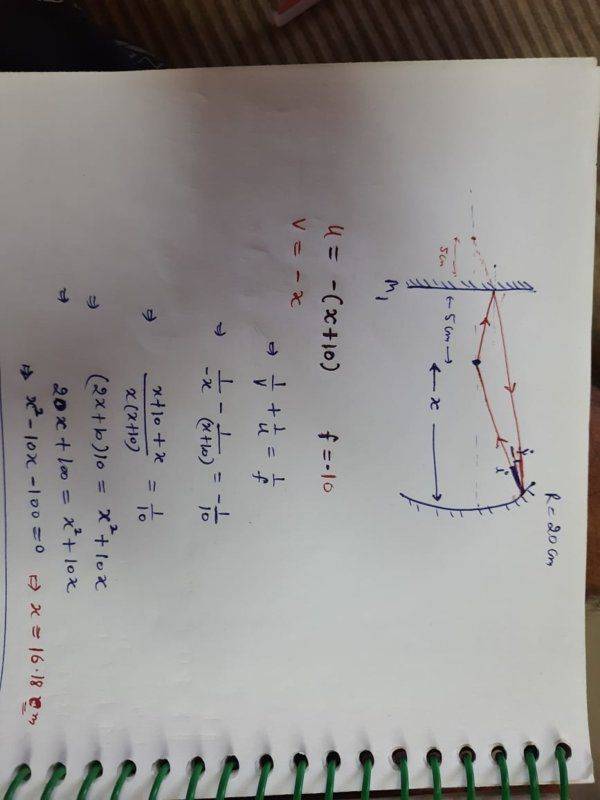 R = 20 cm
i
r
5 cm
← 5 cm →
M₁
← x →
u = -(x+10)    f = -10
v = - x
⇒ 1/v + 1/u = 1/f
⇒ 1/-x - 1/(x+10) = -1/10
⇒ x+10 + x / x(x+10) = 1/10
⇒ (2x+10)10 = x² + 10x
⇒ 20x + 100 = x² + 10x
⇒ x² - 10x - 100 = 0 ⇒ x = 16.18 cm